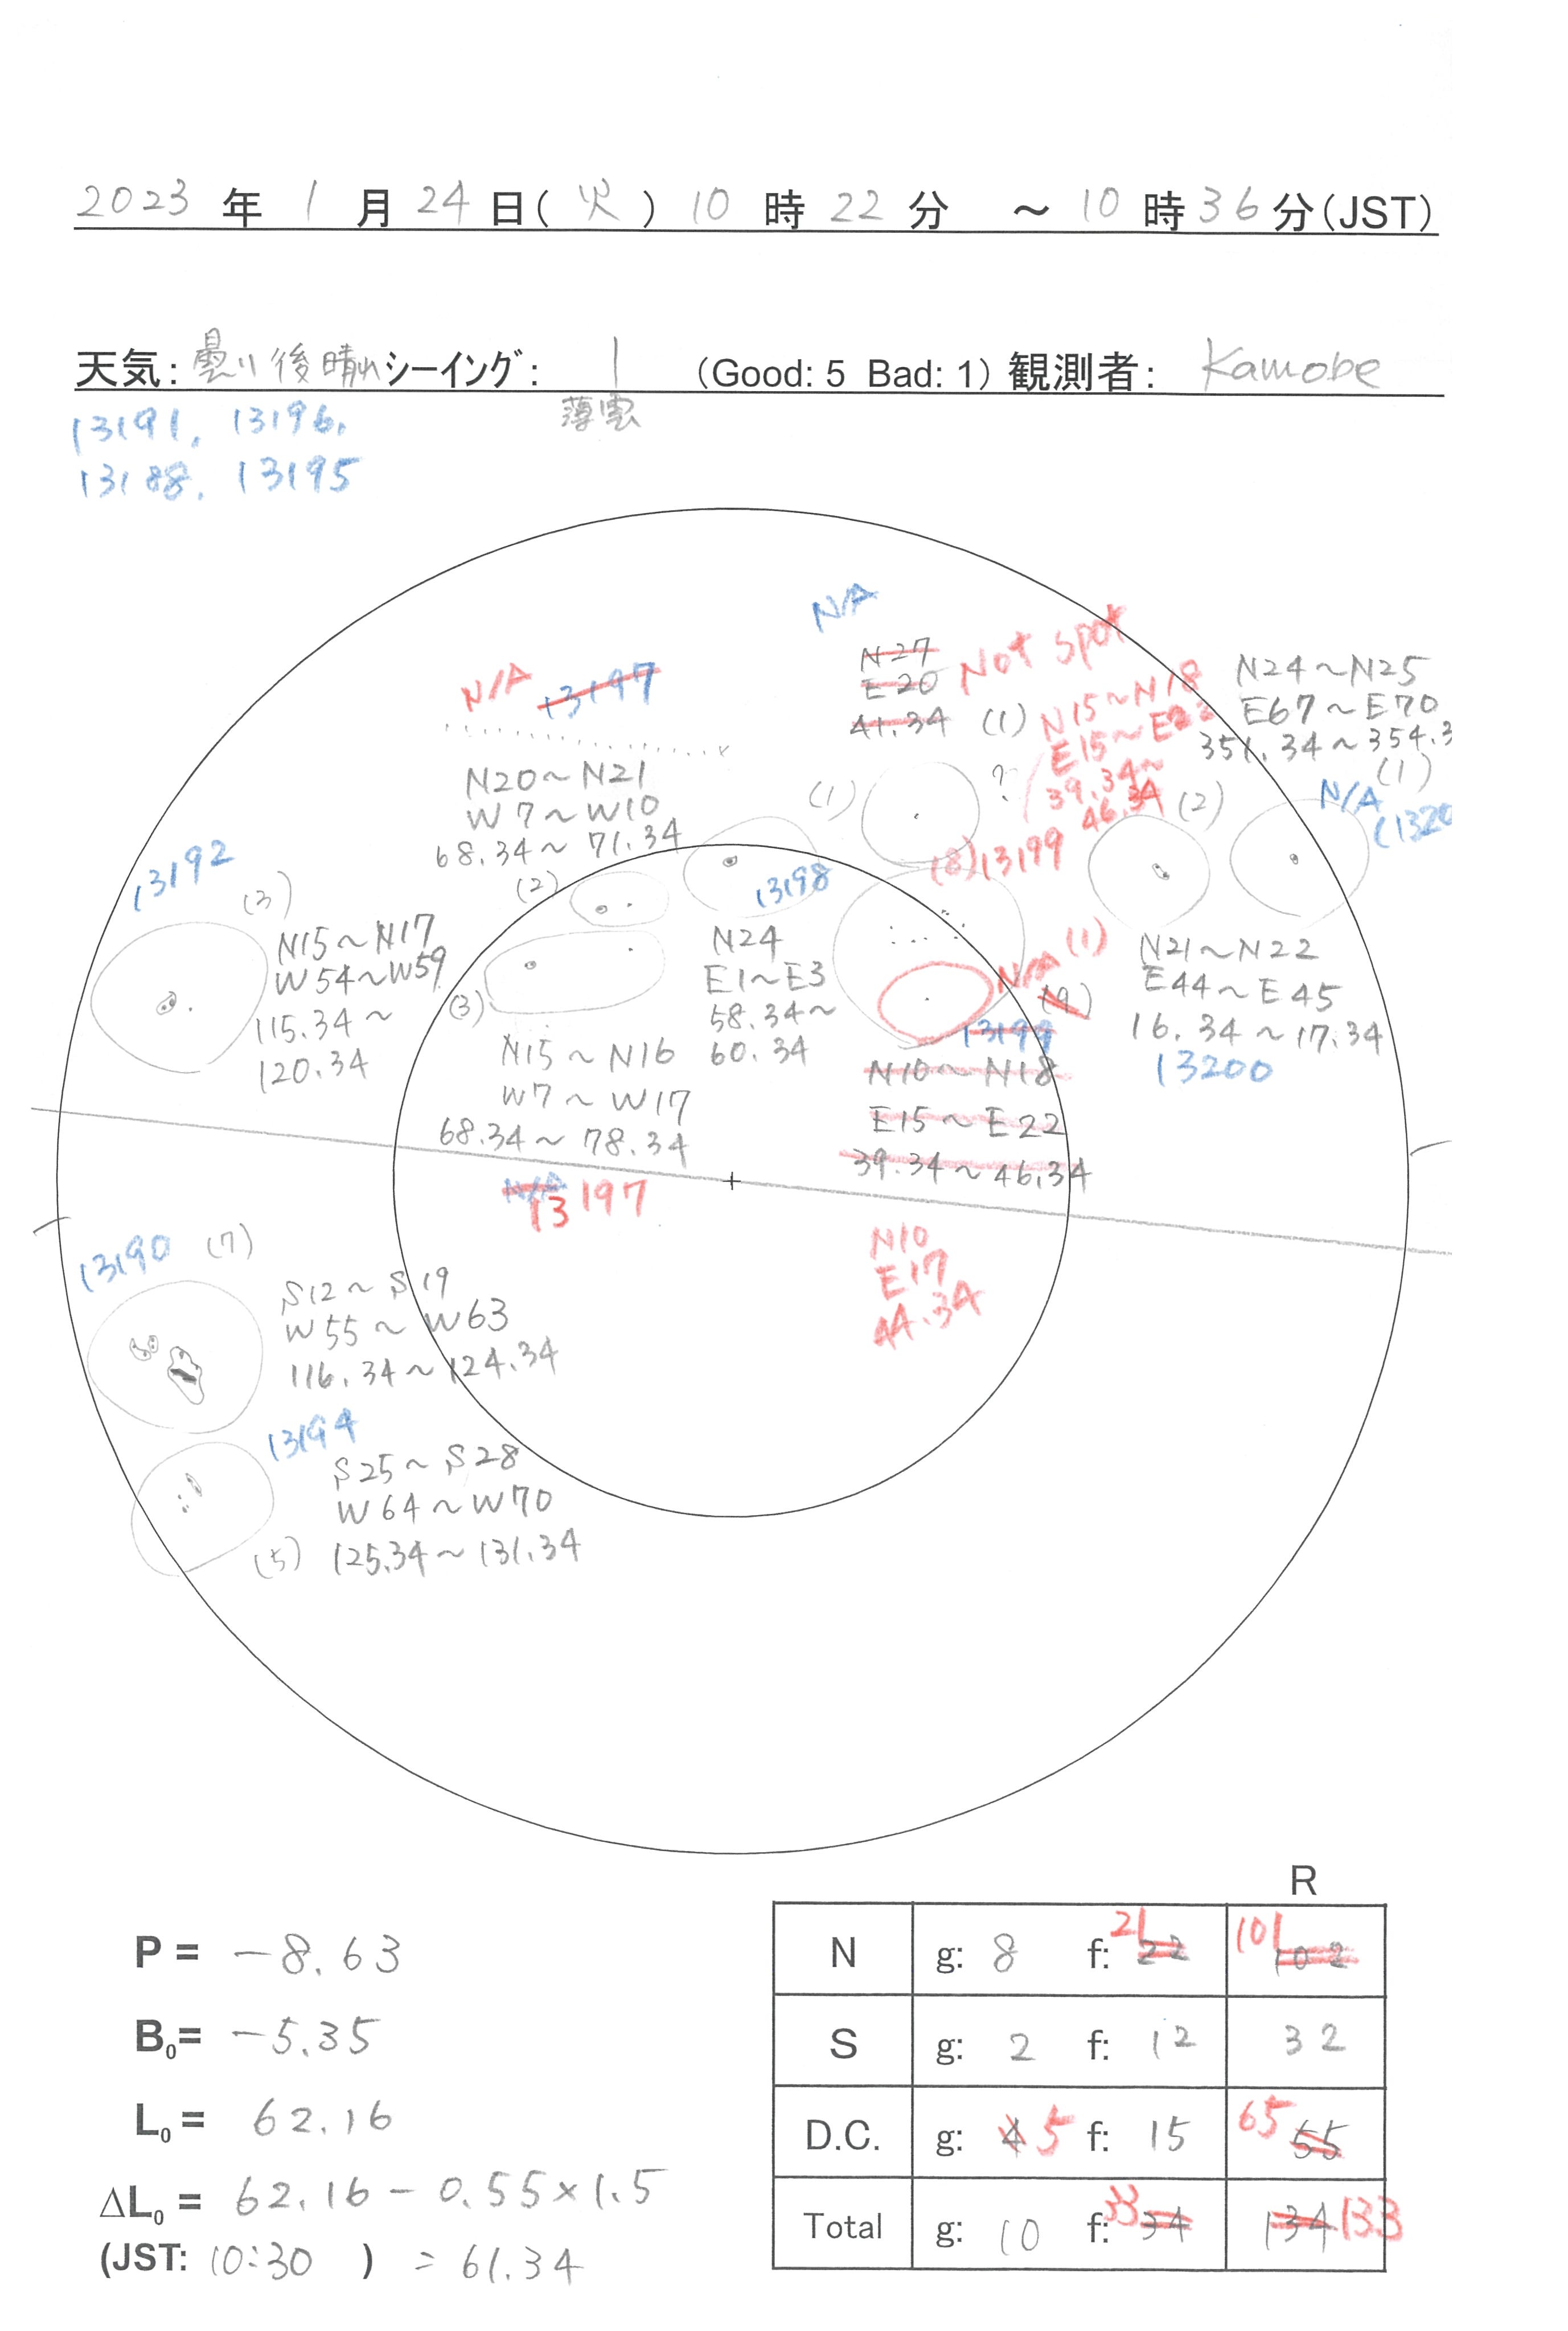 2023 年 1 月 24 日( 火 ) 10 時 22 分 ～ 10 時 36 分(JST)
天気: 曇り後晴れ シーイング: 1 (Good: 5 Bad: 1) 観測者: Kamobe
薄雲
13191, 13196,
13188, 13195
N/A
N27
E20
41.34 (1)
Not spot
N15～N18
E15～E22
39.34～
46.34
(8)13199
N24～N25
E67～E70
351.34～354.3
(1)
N/A
(1320
N/A 13197
N20～N21
W7～W10
68.34～71.34
(2)
(1)
?
(2)
13192
(3)
N15～N17
W54～W59
115.34～
120.34
13198
N24
E1～E3
58.34～
60.34
(3)
N15～N16
W7～W17
68.34～78.34
N/A
13197
N/A (1)
(9)
13199
N10～N18
E15～E22
39.34～46.34
N10
E17
44.34
N21～N22
E44～E45
16.34～17.34
13200
13190 (7)
S12～S19
W55～W63
116.34～124.34
13194
S25～S28
W64～W70
(5) 125.34～131.34
R
N g: 8 f: 21 22 101 102
S g: 2 f: 12 32
D.C. g: 4 5 f: 15 65 55
Total g: 10 f: 33 34 134 133
P = -8.63
B0= -5.35
L0= 62.16
ΔL0 = 62.16 - 0.55×1.5
(JST: 10:30 ) = 61.34